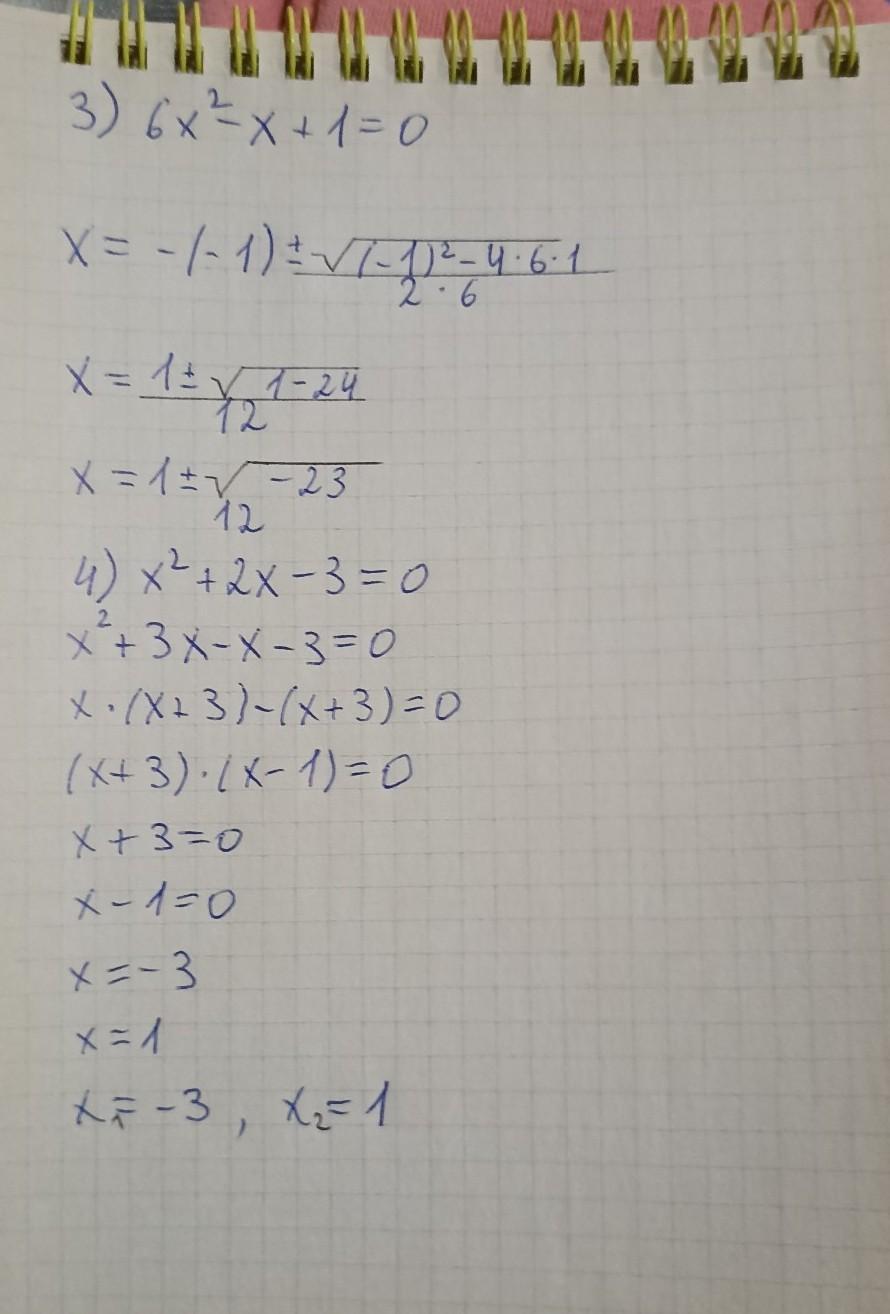 3) 6x² - x + 1 = 0
x = -(-1) ± √(-1)² - 4·6·1
2·6
x = 1 ± √1-24
12
x = 1 ± √-23
12
4) x² + 2x - 3 = 0
x² + 3x - x - 3 = 0
x·(x+3)-(x+3)=0
(x+3)·(x-1)=0
x+3=0
x-1=0
x=-3
x=1
x₁=-3, x₂=1